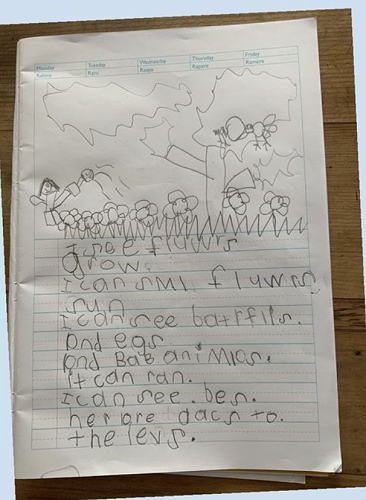 Monday Tuesday Wednesday Thursday Friday
Rāhina Rātū Rāapa Rāpare Rāmere
I see fluwrs
grow.
I can smll fluwrs
sun
I can see batrflis.
and egs.
and Bab aniMlas.
it can ran.
I can see bes.
her are dacs to.
the levs.